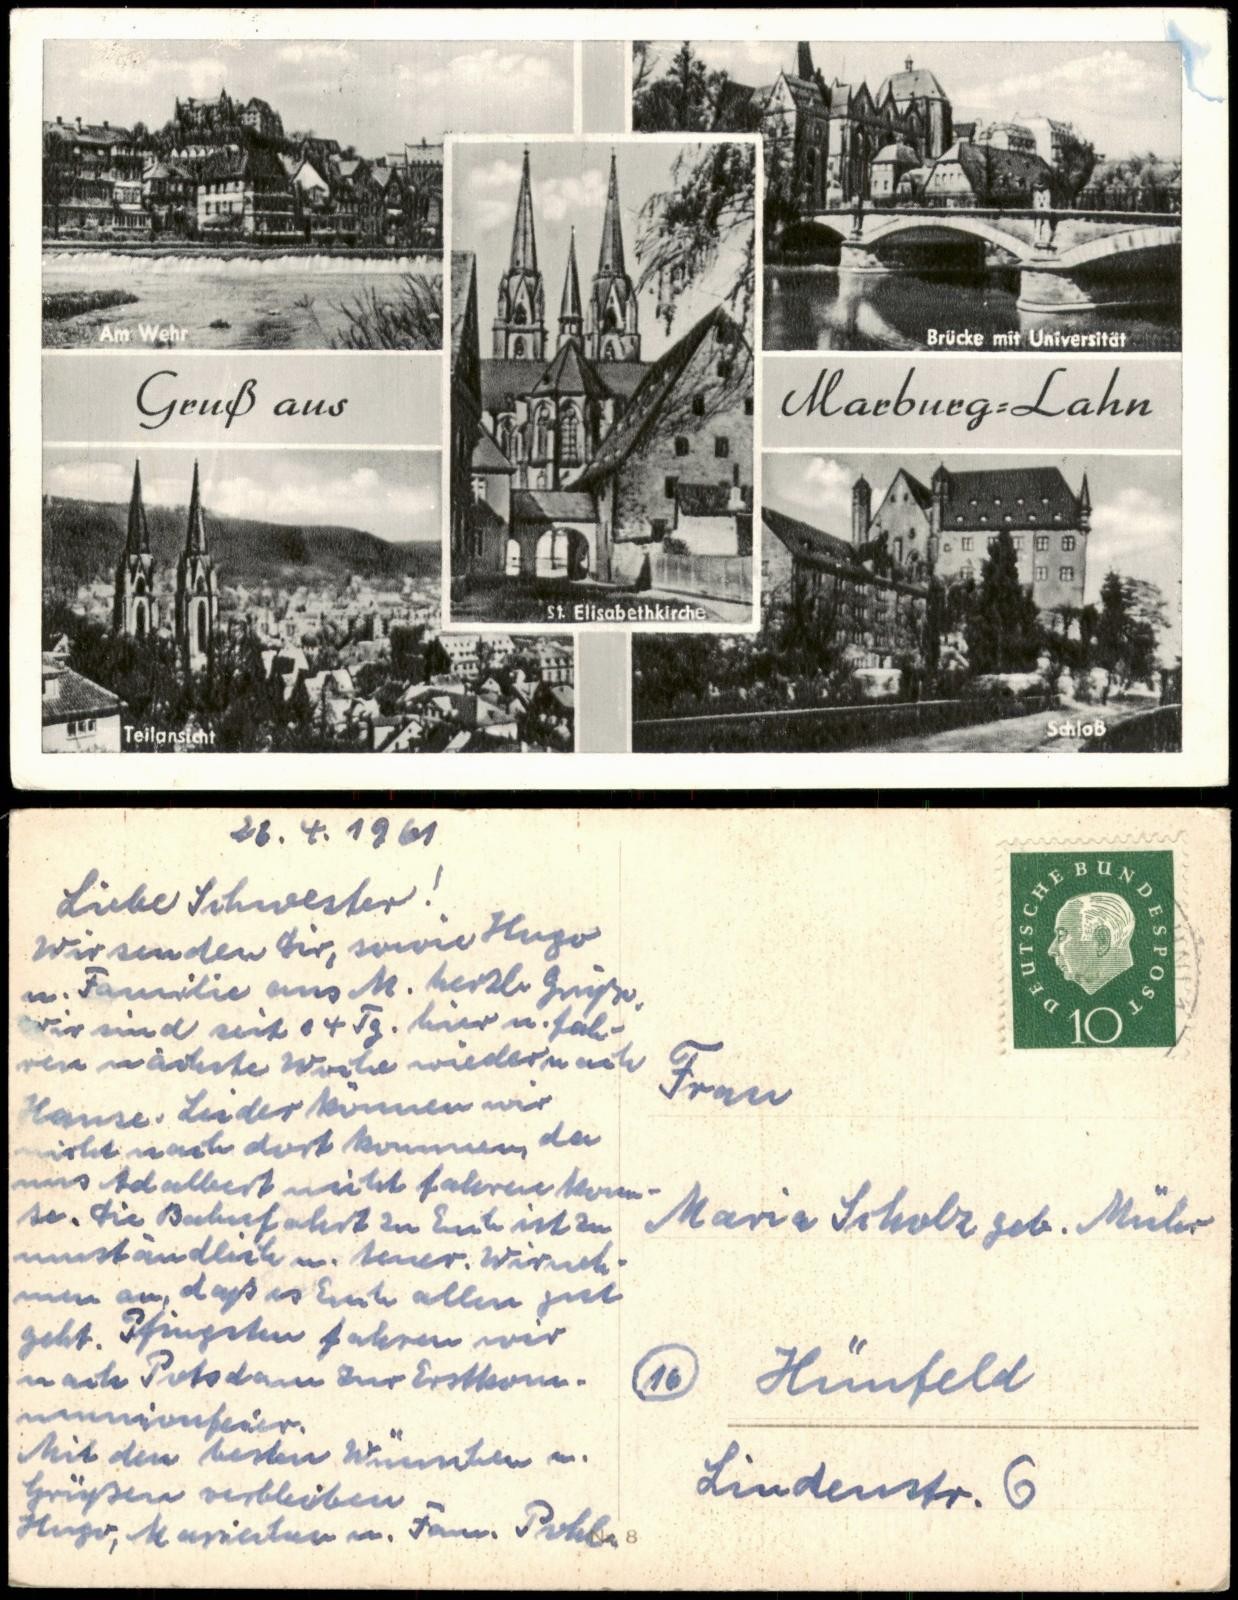 Am Wehr
Brücke mit Universität
Gruß aus
Marburg=Lahn
St. Elisabethkirche
Teilansicht
Schloß
28. 4. 1961
Liebe Schwester!
Wir senden Dir, sowie Hugo
u. Familie aus M. herzl. Grüße,
wir sind seit 14 Tg. hier u. fah-
ren nächste Woche wieder nach
Hause. Leider können wir
nicht nach dort kommen, da
uns Adalbert nicht fahren konn-
te. Die Bahnfahrt zu Euch ist zu
umständlich u. teuer. Wir neh-
men an, daß es Euch allen gut
geht. Pfingsten fahren wir
nach Potsdam zur Erstkom-
munionfeier.
Mit den besten Wünschen u.
Grüßen verbleiben
Hugo, u. Fam. Pohl.
Nr. 8
DEUTSCHE BUNDESPOST
10
Frau
Maria Scholz geb. Mühr
16 Hünfeld
Lindenstr. 6